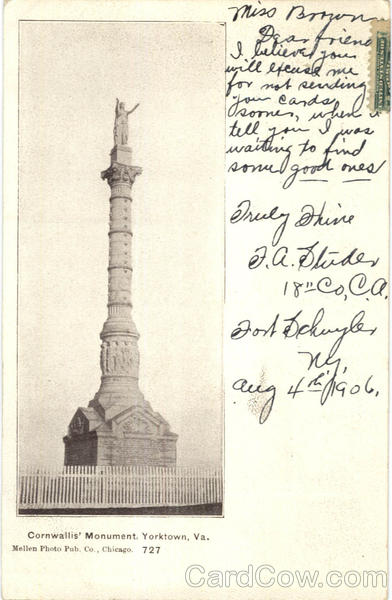 Miss Brown
Dear friend
I believe you
will excuse me
for not sending
your cards
sooner, when I
tell you I was
waiting to find
some good ones
Truly Thine
F. A. Studer
18" Co, C.A.
Fort Schuyler
N.Y.
Aug 4th, 1906.
Cornwallis' Monument. Yorktown, Va.
Mellen Photo Pub. Co., Chicago. 727
CardCow.com